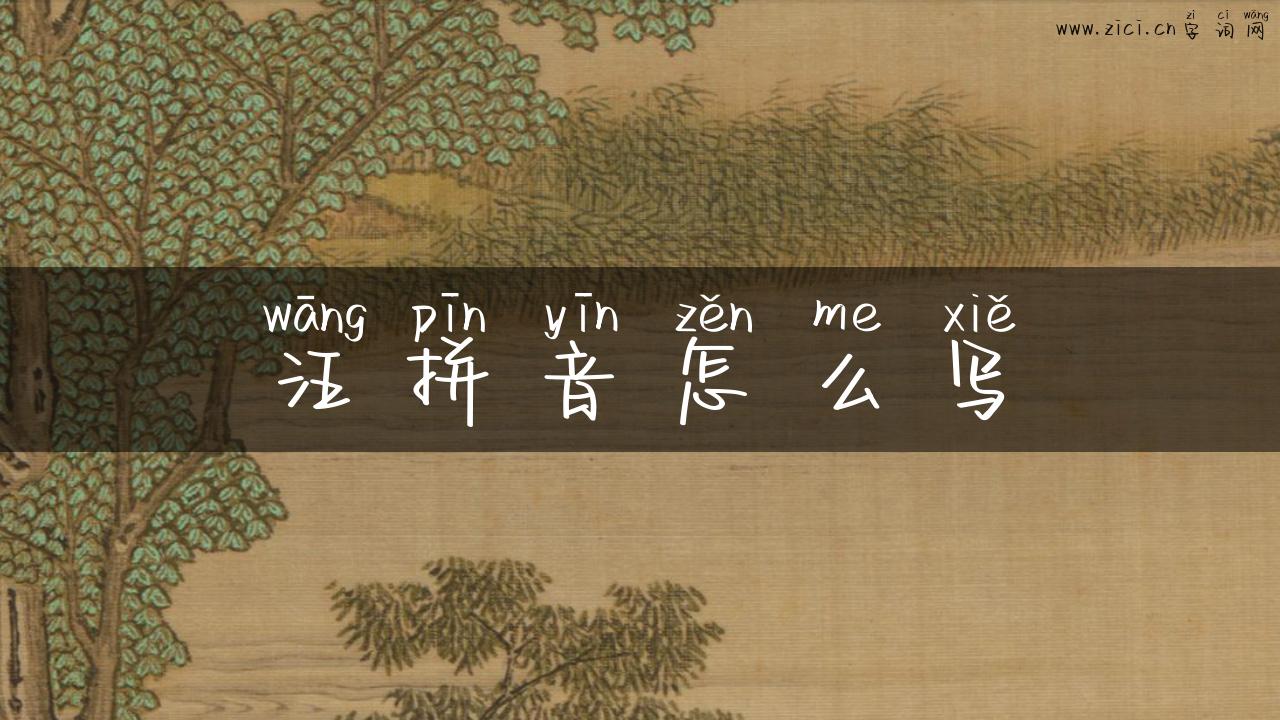 zì cí wǎng
www.zici.cn 字词网
wāng pīn yīn zěn me xiě
汪拼音怎么写